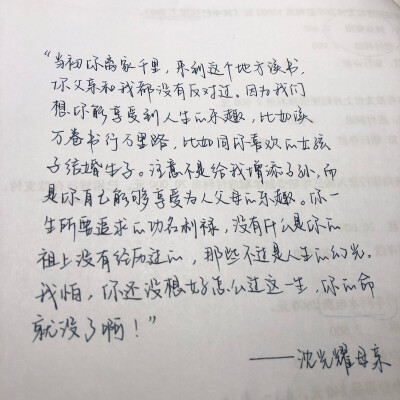 “当初你离家千里，来到这个地方读书，
你父亲和我都没有反对过，因为我们
想你能享受到人生的乐趣，比如读
万卷书行万里路，比如同你喜欢的女孩
子结婚生子。注意不是给我增添子孙，而
是你自己能够享受为人父母的乐趣。你一
生所要追求的功名利禄，没有什么是你的
祖上没有经历过的，那些不过是人生的幻光。
我怕，你还没想好怎么过这一生，你的命
就没了啊！”
——沈光耀母亲